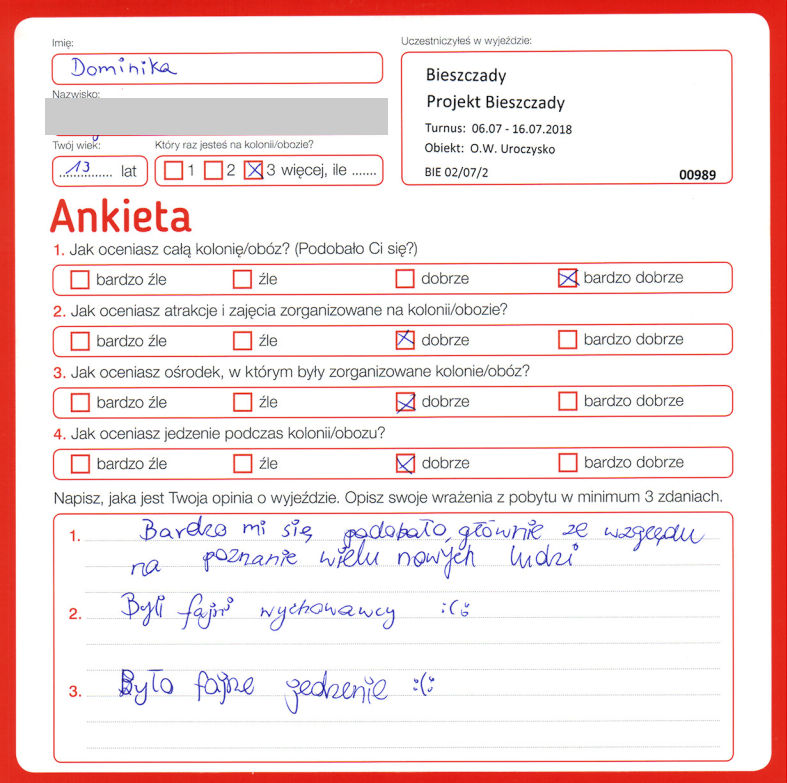 Imię:
Uczestniczyłeś w wyjeździe:
Dominika
Bieszczady
Projekt Bieszczady
Turnus: 06.07 - 16.07.2018
Obiekt: O.W. Uroczysko
BIE 02/07/2 00989
Nazwisko:
Twój wiek:
Który raz jesteś na kolonii/obozie?
13 lat
1 2 3 więcej, ile .......
Ankieta
1. Jak oceniasz całą kolonię/obóz? (Podobało Ci się?)
bardzo źle źle dobrze bardzo dobrze
2. Jak oceniasz atrakcje i zajęcia zorganizowane na kolonii/obozie?
bardzo źle źle dobrze bardzo dobrze
3. Jak oceniasz ośrodek, w którym były zorganizowane kolonie/obóz?
bardzo źle źle dobrze bardzo dobrze
4. Jak oceniasz jedzenie podczas kolonii/obozu?
bardzo źle źle dobrze bardzo dobrze
Napisz, jaka jest Twoja opinia o wyjeździe. Opisz swoje wrażenia z pobytu w minimum 3 zdaniach.
1. Bardzo mi się podobało, głównie ze względu
na poznanie wielu nowych ludzi
2. Byli fajni wychowawcy :(:
3. Było fajne jedzenie :(: